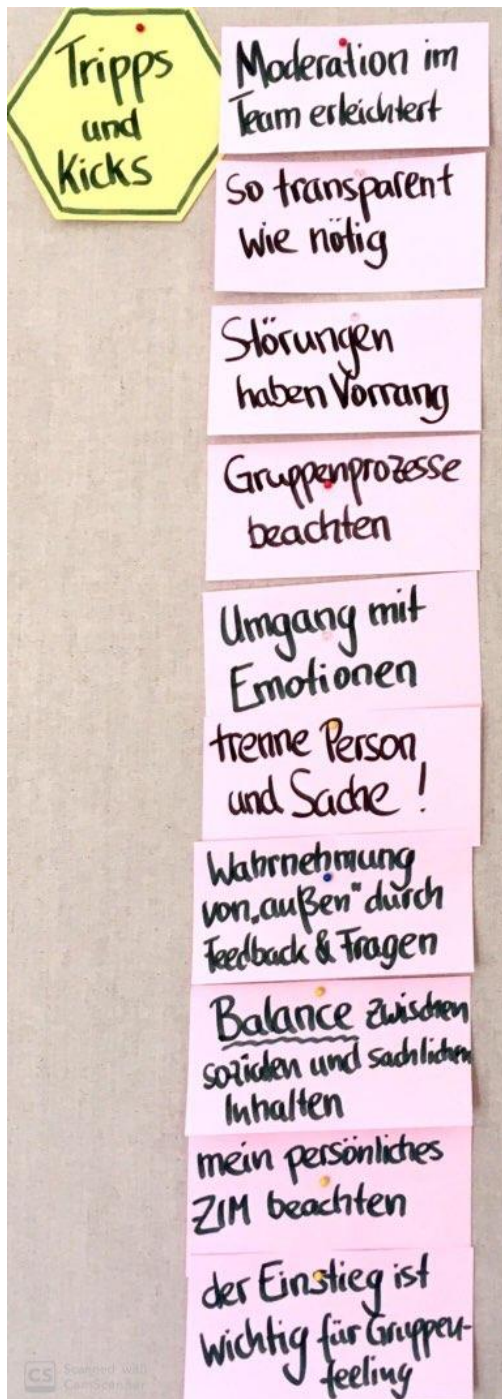 Tripps
und
Kicks
Moderation im
Team erleichtert
So transparent
wie nötig
Störungen
haben Vorrang
Gruppenprozesse
beachten
Umgang mit
Emotionen
trenne Person
und Sache!
Wahrnehmung
von „außen“ durch
Feedback & Fragen
Balance zwischen
sozialen und sachlichen
Inhalten
mein persönliches
ZIM beachten
der Einstieg ist
wichtig für Gruppen-
feeling
CS Scanned with
CamScanner